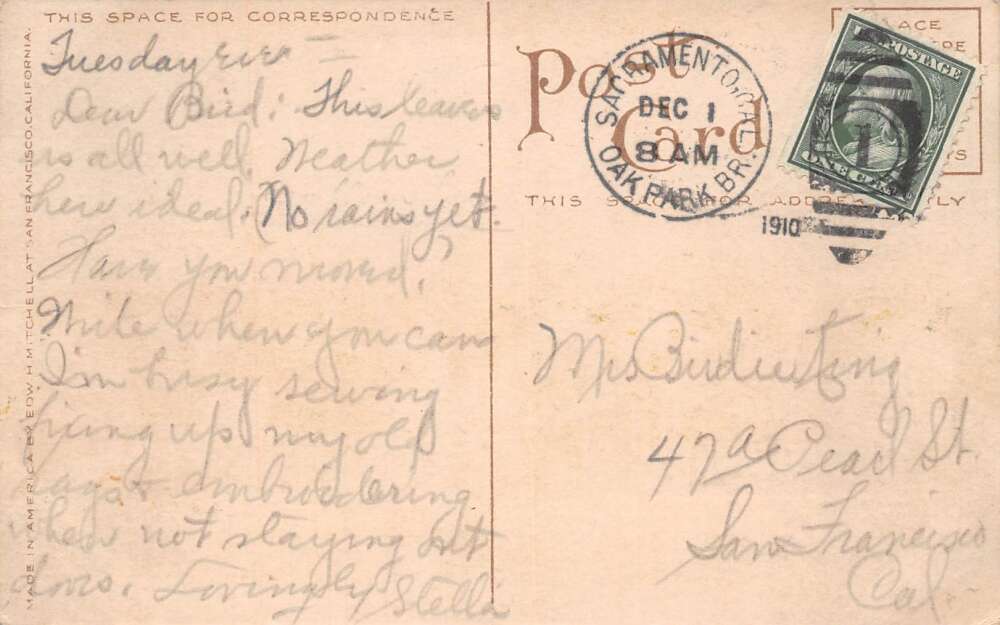 THIS SPACE FOR CORRESPONDENCE
Tuesday eve
Dear Bird: This leaves
us all well. Weather
here ideal. No rains yet.
Have you moved?
Write when you can
I'm busy sewing
fixing up my old
rags & embroidering
when not staying out
doors. Lovingly Stella
MADE IN AMERICA BY EDW. H. MITCHELL AT SAN FRANCISCO, CALIFORNIA.
Post Card
THIS SPACE FOR ADDRESS ONLY
SACRAMENTO, CAL.
DEC 1
8 AM
OAK PARK BR.
1910
1
U.S. POSTAGE
ONE CENT
Mrs Birdie
47a Pearl St.
San Francisco
Cal.